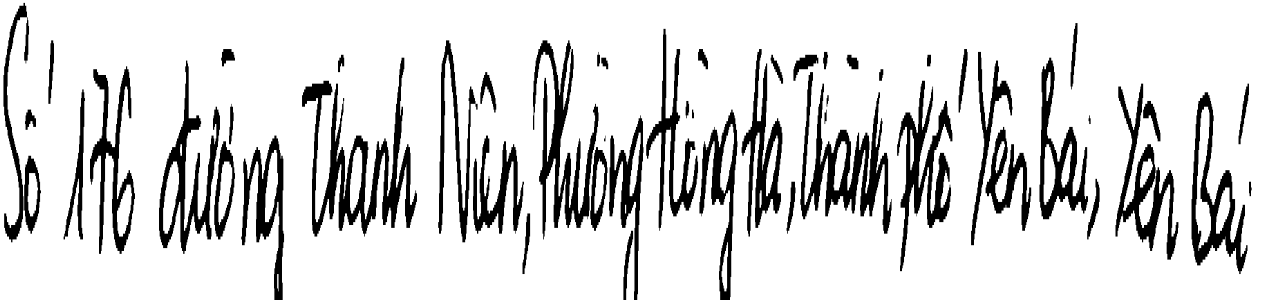 Số 176 đường Thanh Niên, Phường Hồng Hà, Thành phố Yên Bái, Yên Bái